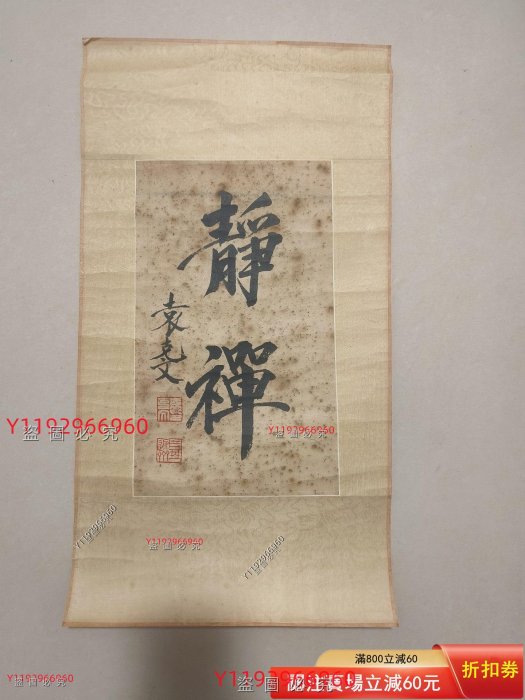 靜
禪
袁克文
Y1192966960
盜圖必究
Y1192966960
盜圖必究
Y1192966960
盜圖必究
Y1192966960
盜圖必究
Y1192966960
盜圖必究
Y1192966960
盜圖必究
Y1192966960
盜圖必究
滿800立減60
賣場立減60元
折扣券